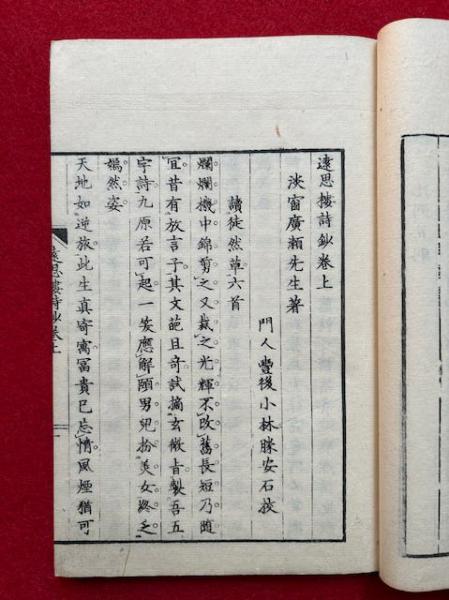 遠思樓詩鈔卷上
淡窗廣瀨先生著
門人豐後小林勝安石挍
讀徒然草六首
爛爛機中錦剪之又裁之光輝不改舊長短乃隨
宜昔有放言子其文葩且奇試摘玄微旨製吾五
字詩九原若可起一笑應解頤男兒扮美女終乏
嫣然姿
天地如逆旅此生真寄寓冨貴已忘情風煙猶可
遠思樓詩鈔卷上